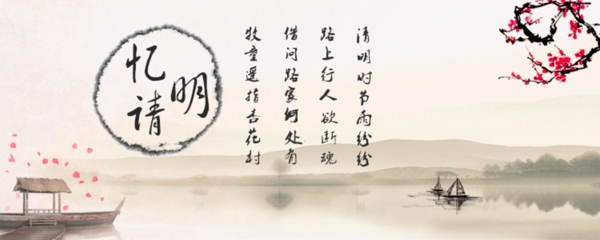 忆请
明
清明时节雨纷纷
路上行人欲断魂
借问路家何处有
牧童遥指杏花村